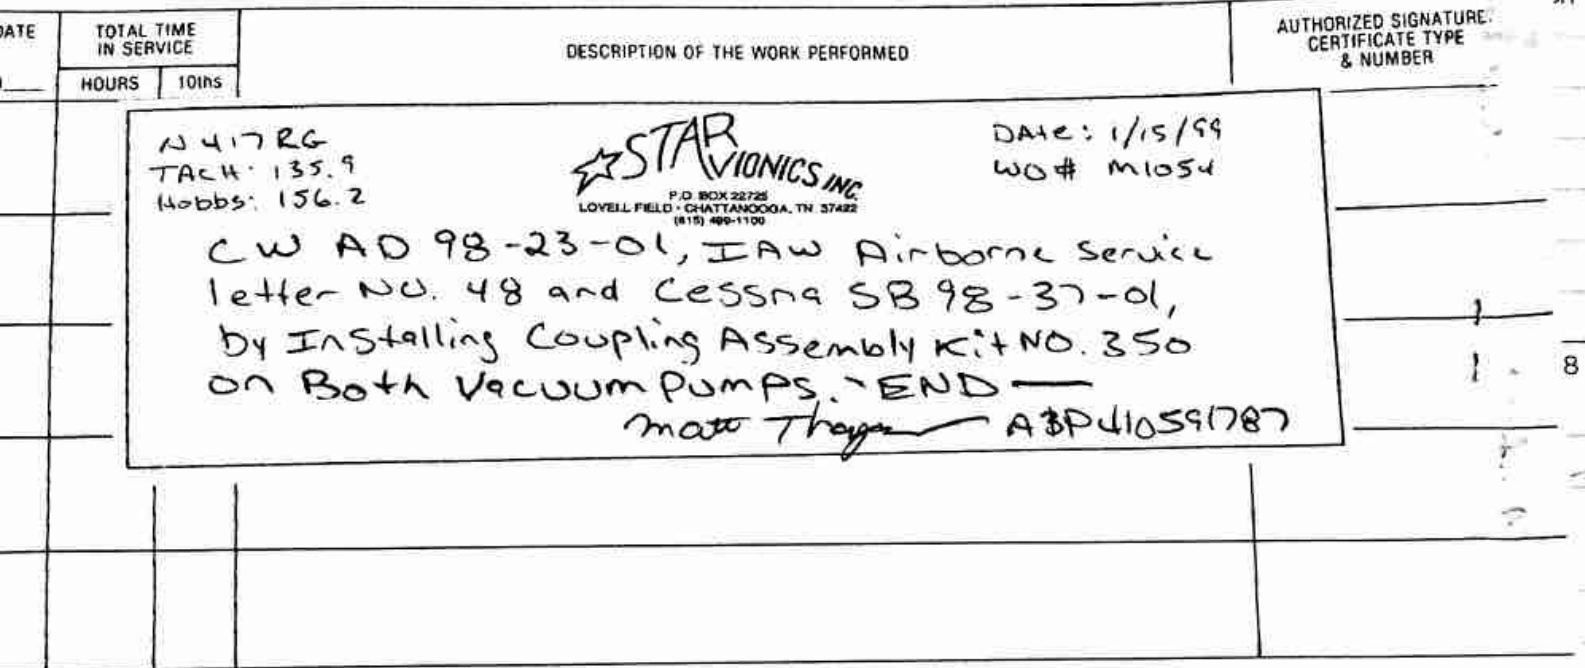 DATE
TOTAL TIME
IN SERVICE
HOURS 10ths
DESCRIPTION OF THE WORK PERFORMED
AUTHORIZED SIGNATURE.
CERTIFICATE TYPE
& NUMBER
N417RG
TACH: 135.9
Hobbs: 156.2
STAR
VIONICS INC.
P.O. BOX 22725
LOVELL FIELD • CHATTANOOGA, TN 37422
(615) 499-1100
DATE: 1/15/99
WO# M1054
CW AD 98-23-01, IAW Airborne Service
letter NO. 48 and Cessna SB 98-37-01,
by Installing Coupling Assembly Kit NO. 350
on Both Vacuum Pumps. - END —
Matt Thayer A&P410591787
8